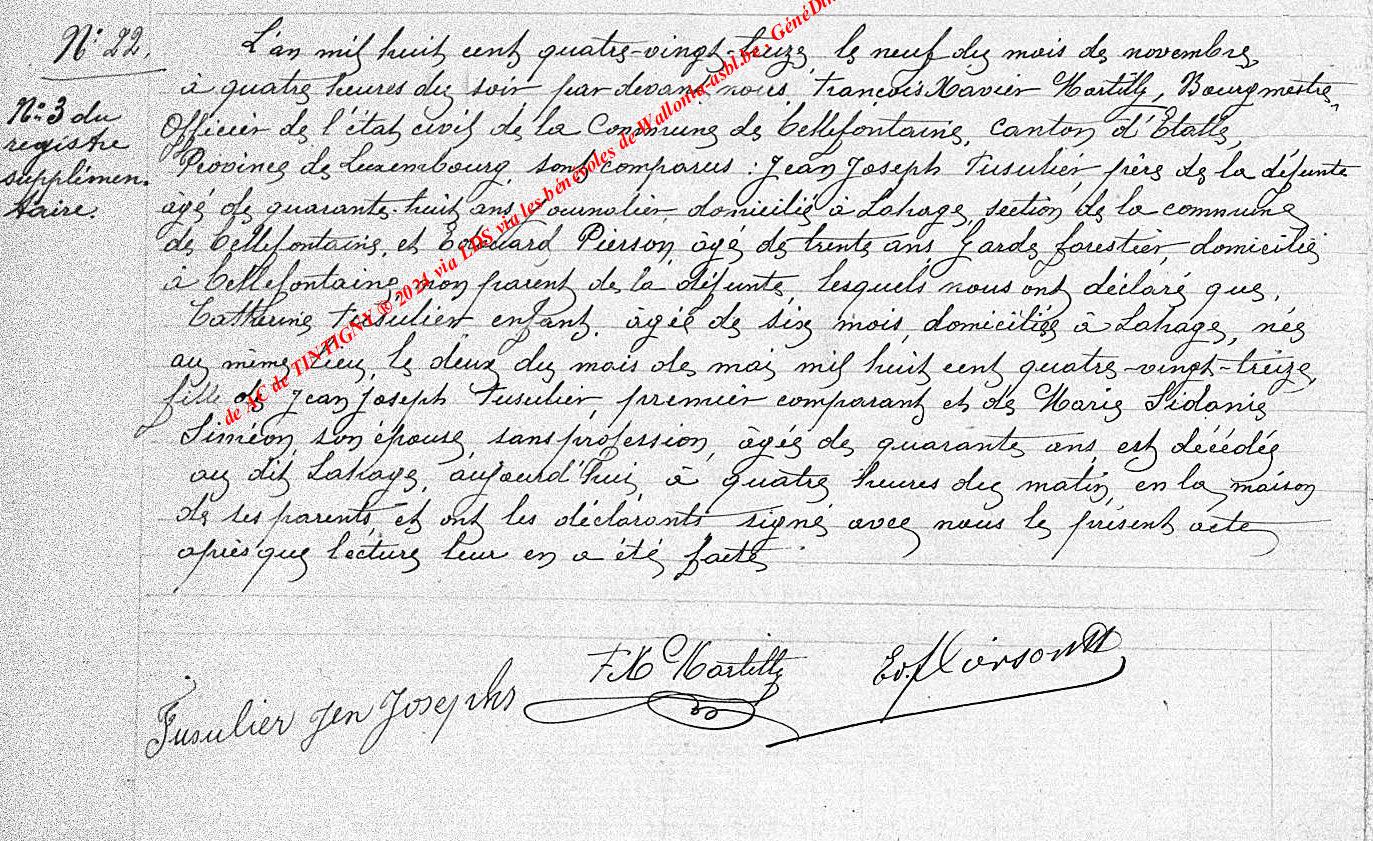 N° 22.
N° 3 du
registre
supplémen-
taire.
L'an mil huit cent quatre-vingt-treize, le neuf du mois de novembre,
à quatre heures du soir, par devant nous, François Xavier Martilly, Bourgmestre,
Officier de l'état civil de la Commune de Bellefontaine, canton d'Etalle,
Province de Luxembourg, sont comparus : Jean Joseph Fusulier, père de la défunte
âgé de quarante-huit ans, Journalier, domicilié à Lahage, section de la commune
de Bellefontaine, et Edouard Pierson, âgé de trente ans, Garde forestier, domicilié
à Bellefontaine, non parent de la défunte, lesquels nous ont déclaré que,
Catherine Fusulier, enfant, âgée de six mois, domiciliée à Lahage, née
au même lieu, le deux du mois de mai mil huit cent quatre-vingt-treize,
fille de Jean Joseph Fusulier, premier comparant et de Marie Sidonie
Siméon, son épouse, sans profession, âgée de quarante ans, est décédée
au dit Lahage, aujourd'hui, à quatre heures du matin, en la maison
de ses parents, et ont les déclarants signé avec nous le présent acte
après que lecture leur en a été faite
Fusulier Jen Josephs
F. X Martilly
Ed. Pierson
de AC de TINTIGNY ® 2021 via LDS via les bénévoles de Wallonia-asbl.be, GénéDin